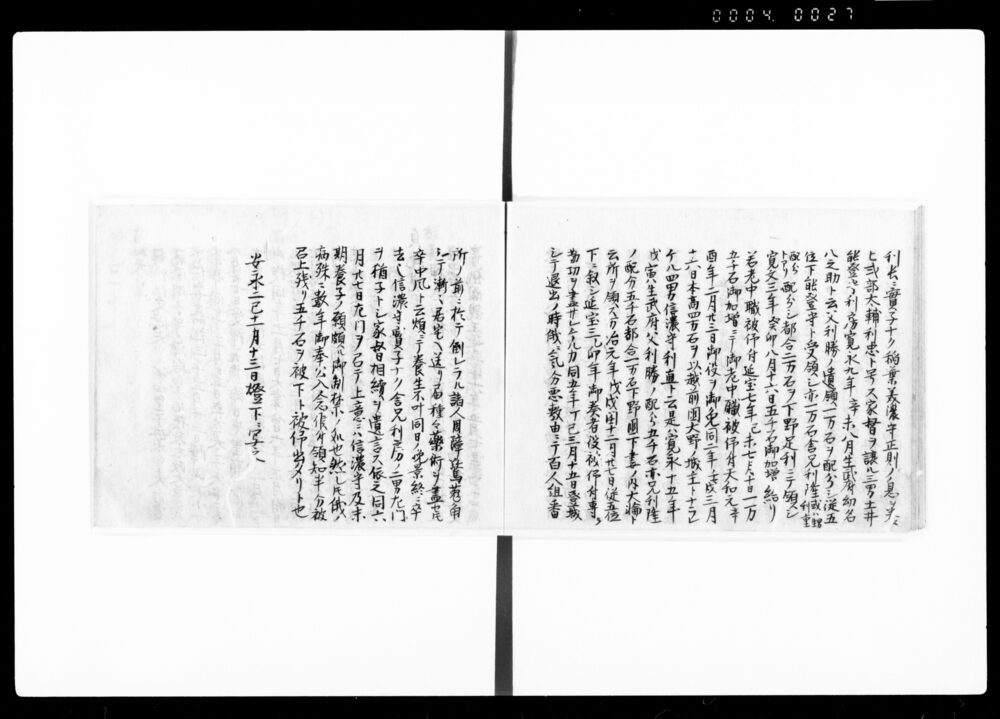 0004. 0027
利長ニ實子ナク稲葉美濃守正則ノ息ヲ
上式部大輔利忠ト号ス家督ヲ譲ル三男土井
能登守利房寛永九年辛未八月生武府幼名
八之助ト云父利勝ノ遺領一万石ヲ配分シ従五
位下能登守ト受領シ亦一万石舎兄利隆或ハ甥利重
配分シ都合二万石ヲ下野足利ニテ領シ
寛文三年癸卯八月十六日五千石御加増給り
若老中職被仰付延宝七年己未七月十日一万
五千石御加増ニテ御老中職被仰付大和元辛
酉年二月廿三日御役ヲ御免同二年壬戌三月
十六日本高四万石ヲ以越前國大野ノ城主トナレ
ケハ四男信濃守利直ト云是寛永十五年
戊寅生武府父利勝ノ配分五千石亦兄利隆
ノ配分五千石都合一万石下野國下妻ノ内大輪ト
云所ヲ領ス万治元年戊戌閏十二月廿七日従五位
下ニ叙シ延宝三乙卯年御奏者役被仰付専ラ
勤功ヲ盡サレシカ同五年丁巳三月十五日登城
シテ退出ノ時俄ニ気分悪敷由ニテ百人組番
所ノ前ニ於テ倒レラル諸人周障
シテ漸ニ居宅ヘ送リ届種々藥術ヲ盡セ𪜈
卒中風ト云煩ニテ養生不叶同日ノ晩景終ニ卒
去し信濃守實子ナク舎兄利房ノ二男左門
ヲ猶子トシ家督相續ヲ遺言ス依之同六
月廿七日左門ヲ召テ上意ニハ信濃守及末
期養子ノ願頗ル御制禁ノ如也然𪜈俄ノ
病殊ニ數年御奉公入念依領知半分被
召上残リ五千石ヲ被下ト被仰出タリト也
安永二巳十一月十三日燈下ニ写之